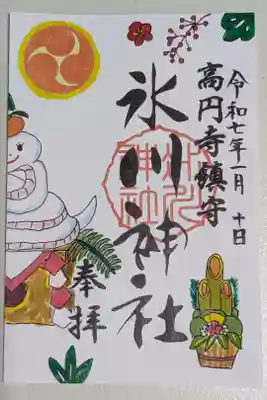 令和七年一月 十日
高円寺鎮守
氷川神社
奉拝
氷川神社